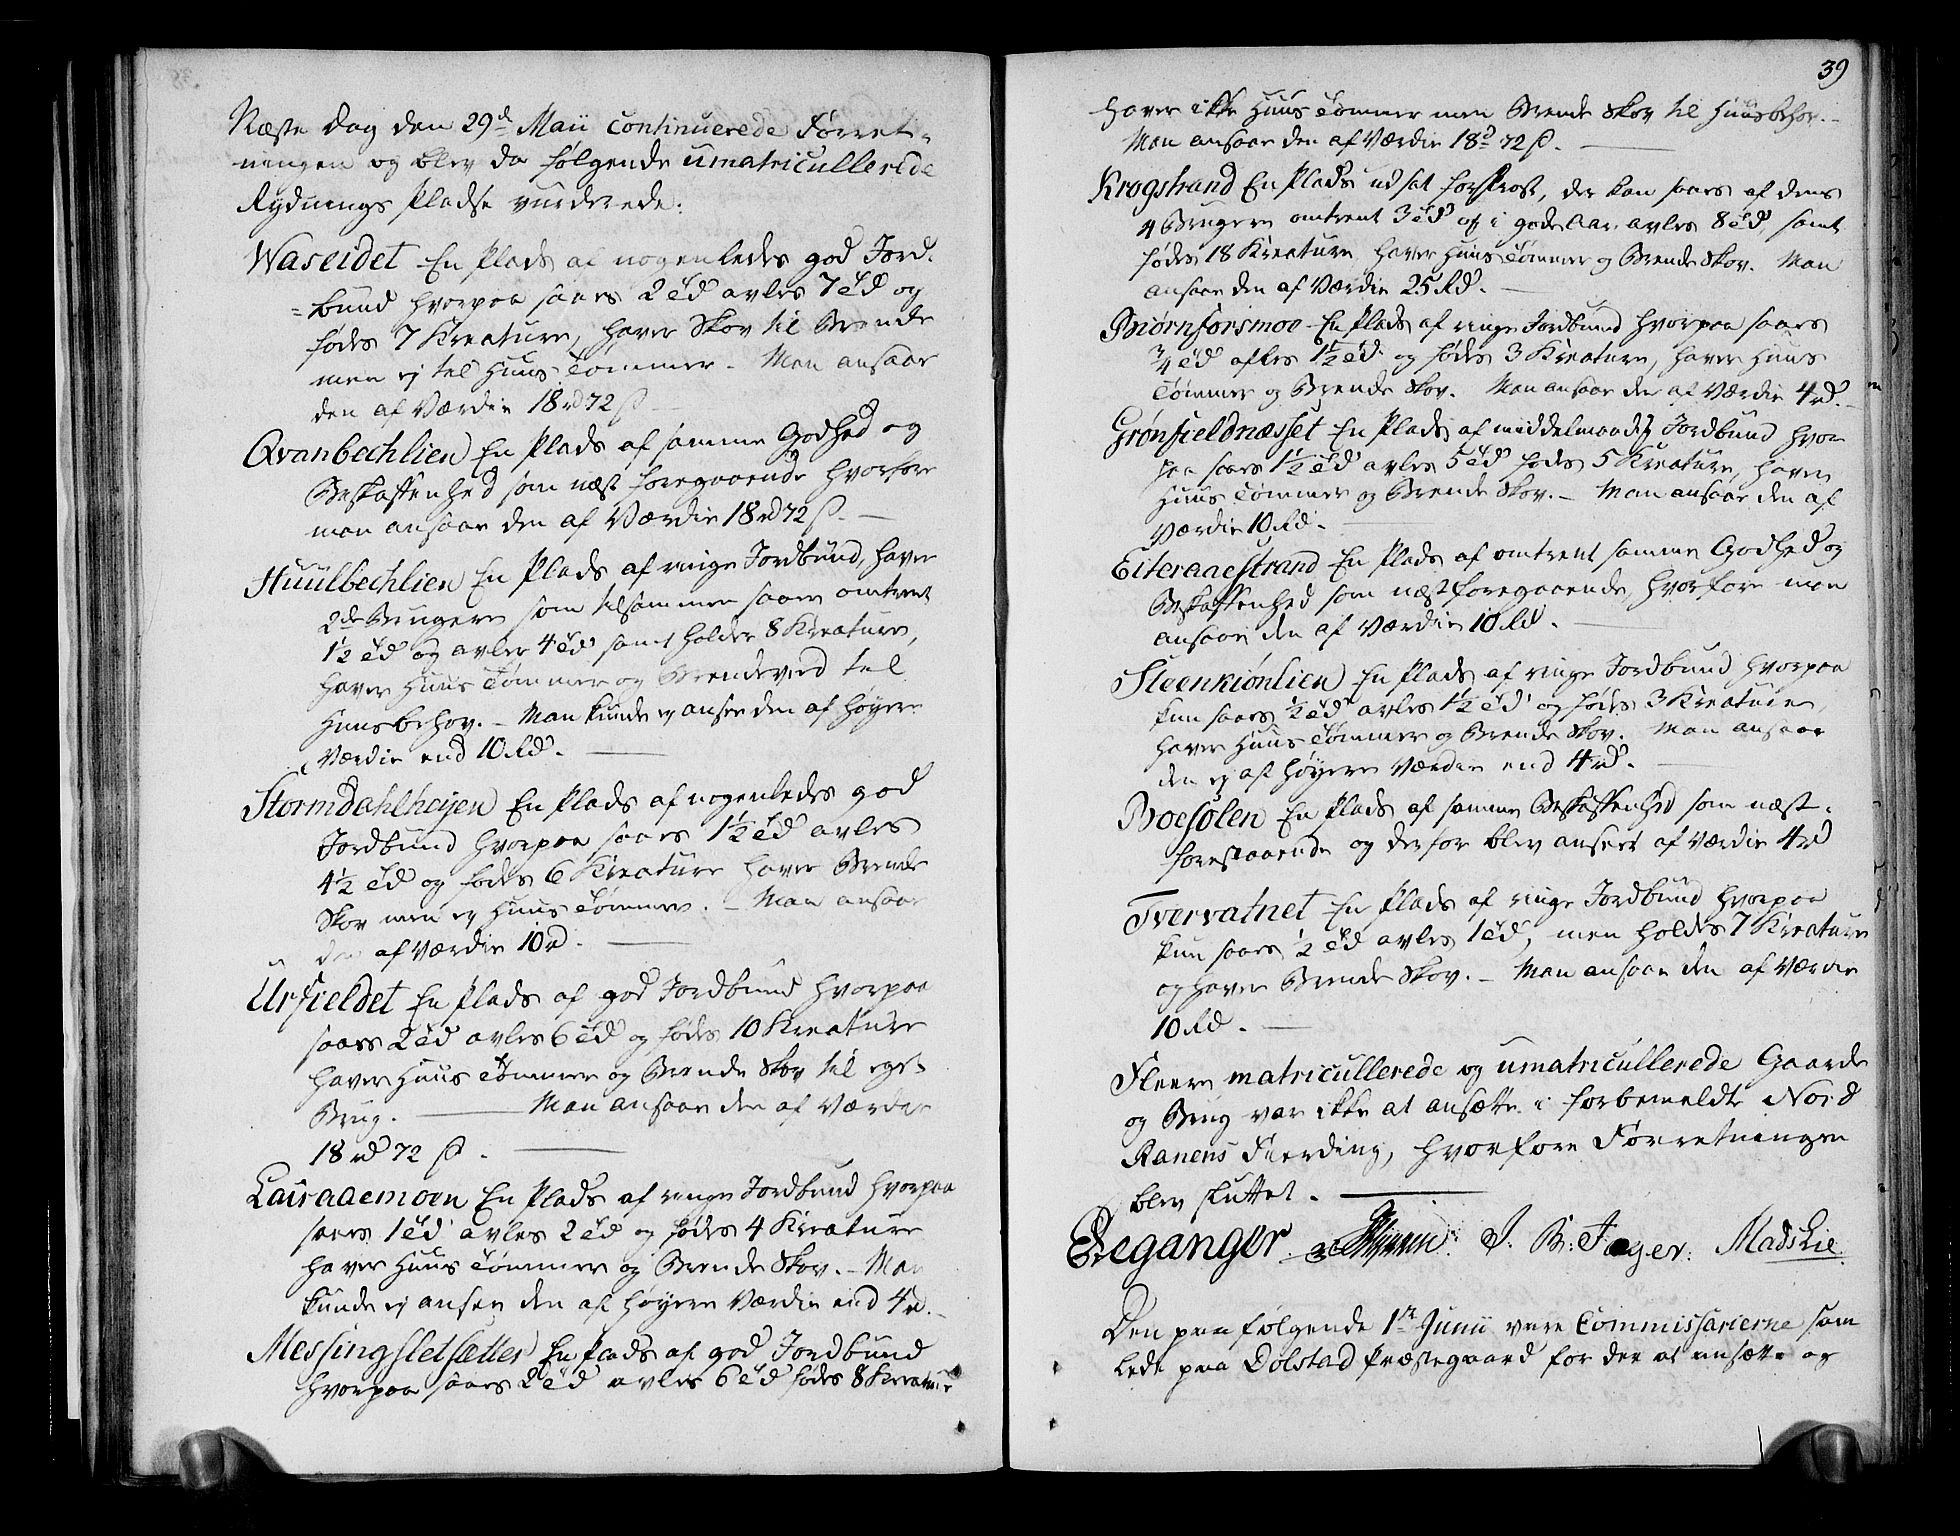 Næste Dag den 29de Maii continuerede Forret-
ningen og blev da følgende umatricullerede
Rydnings Pladse vurderede:
Waseidet En Plads af nogenledes god Jord-
bund hvorpaa saaes 2 Td avles 7 Td og
fødes 7 Kreature, haver Skov til Brende
men ej til Huus Tømmer. Man ansaae
den af Værdie 18 rd 72 s
Qvanbechlien En Plads af samme Godhed og
Beskaffenhed som næst foregaaende hvorfore
man ansaae den af Værdie 18 rd 72 s. —
Huulbechlien En Plads af ringe Jordbund, haver
2de Brugere som tilsammen saaer omtrent
1½ Td og avler 4 Td samt holder 8 Kreature,
haver Huus Tømmer og Brendeved til
Huusbehov. – Man kunde ej ansee den af høyere
Værdie end 10 Rd. —
Stormdahlheijen En Plads af nogenledes god
Jordbund hvorpaa saaes 1½ Td avles
4½ Td og fødes 6 Kreature haver Brende
Skov men ej Huus Tømmer. – Man ansaae
den af Værdie 10 rd. —
Urfieldet En Plads af god Jordbund hvorpaa
saaes 2 Td avles 6 Td og fødes 10 Kreature
haver Huus Tømmer og Brende Skov til eget
Brug. — Man ansaae den af Værdie
18 rd 72 s. —
Lairaaemoen En Plads af ringe Jordbund hvorpaa
saaes 1 Td avles 2 Td og fødes 4 Kreature
haver Huus Tømmer og Brende Skov. – Man
kunde ej ansee den af høyere Værdie end 4 rd.
Messingsletsætter En Plads af god Jordbund
hvorpaa saaes 2 Td avles 6 Td fødes 8 Kreature
39
haver ikke Huus Tømmer men Brende Skov til Huusbehov.
Man ansaae den af Værdie 18 rd 72 s. —
Krogstrand En Plads udsat for Frost, der kan saaes af dens
4 Brugere omtrent 3 Td og i gode Aar avles 8 Td, samt
fødes 18 Kreature, haver Huus Tømmer og Brende Skov. Man
ansaae den af Værdie 25 Rd. —
Biørnforsmoe En Plads af ringe Jordbund hvorpaa saaes
¾ Td afles 1½ Td. og fødes 3 Kreature, haver Huus
Tømmer og Brende Skov. Man ansaae den af Værdie 4 rd.
Grønfieldnæsset En Plads af middelmaadig Jordbund hvor
paa saaes 1½ Td avles 5 Td fødes 5 Kreature, haver
Huus Tømmer og Brende Skov. – Man ansaae den af
Værdie 10 Rd. —
Eiteraaestrand En Plads af omtrent samme Godhed og
Beskaffenhed som næstforegaaende, hvorfore man
ansaae den af Værdie 10 Rd. —
Steenkiønlien En Plads af ringe Jordbund hvorpaa
kun saaes ½ Td avles 1½ Td og fødes 3 Kreature,
haver Huus Tømmer og Brende Skov. Man ansaae
den ej af høyere Værdie end 4 rd. —
Boesolen En Plads af samme Beskaffenhed som næst-
forestaaende og derfor blev anseet af Værdie 4 rd
Tvervatnet En Plads af ringe Jordbund hvorpaa
kun saaes ½ Td avles 1 Td, men holdes 7 Kreature
og haver Brende Skov. – Man ansaae den af Værdie
10 Rd. —
Fleere matricullerede og umatricullerede Gaarde
og Brug var ikke at ansætte i forbemeldte Nord
Ranens Fierding, hvorfore Forretningen
blev sluttet. —
Geganger J. B: Jæger: Mads Lie.
Den paafølgende 1te Junii vare Commissarierne sam
lede paa Dolstad Præstegaard for der at ansætte og